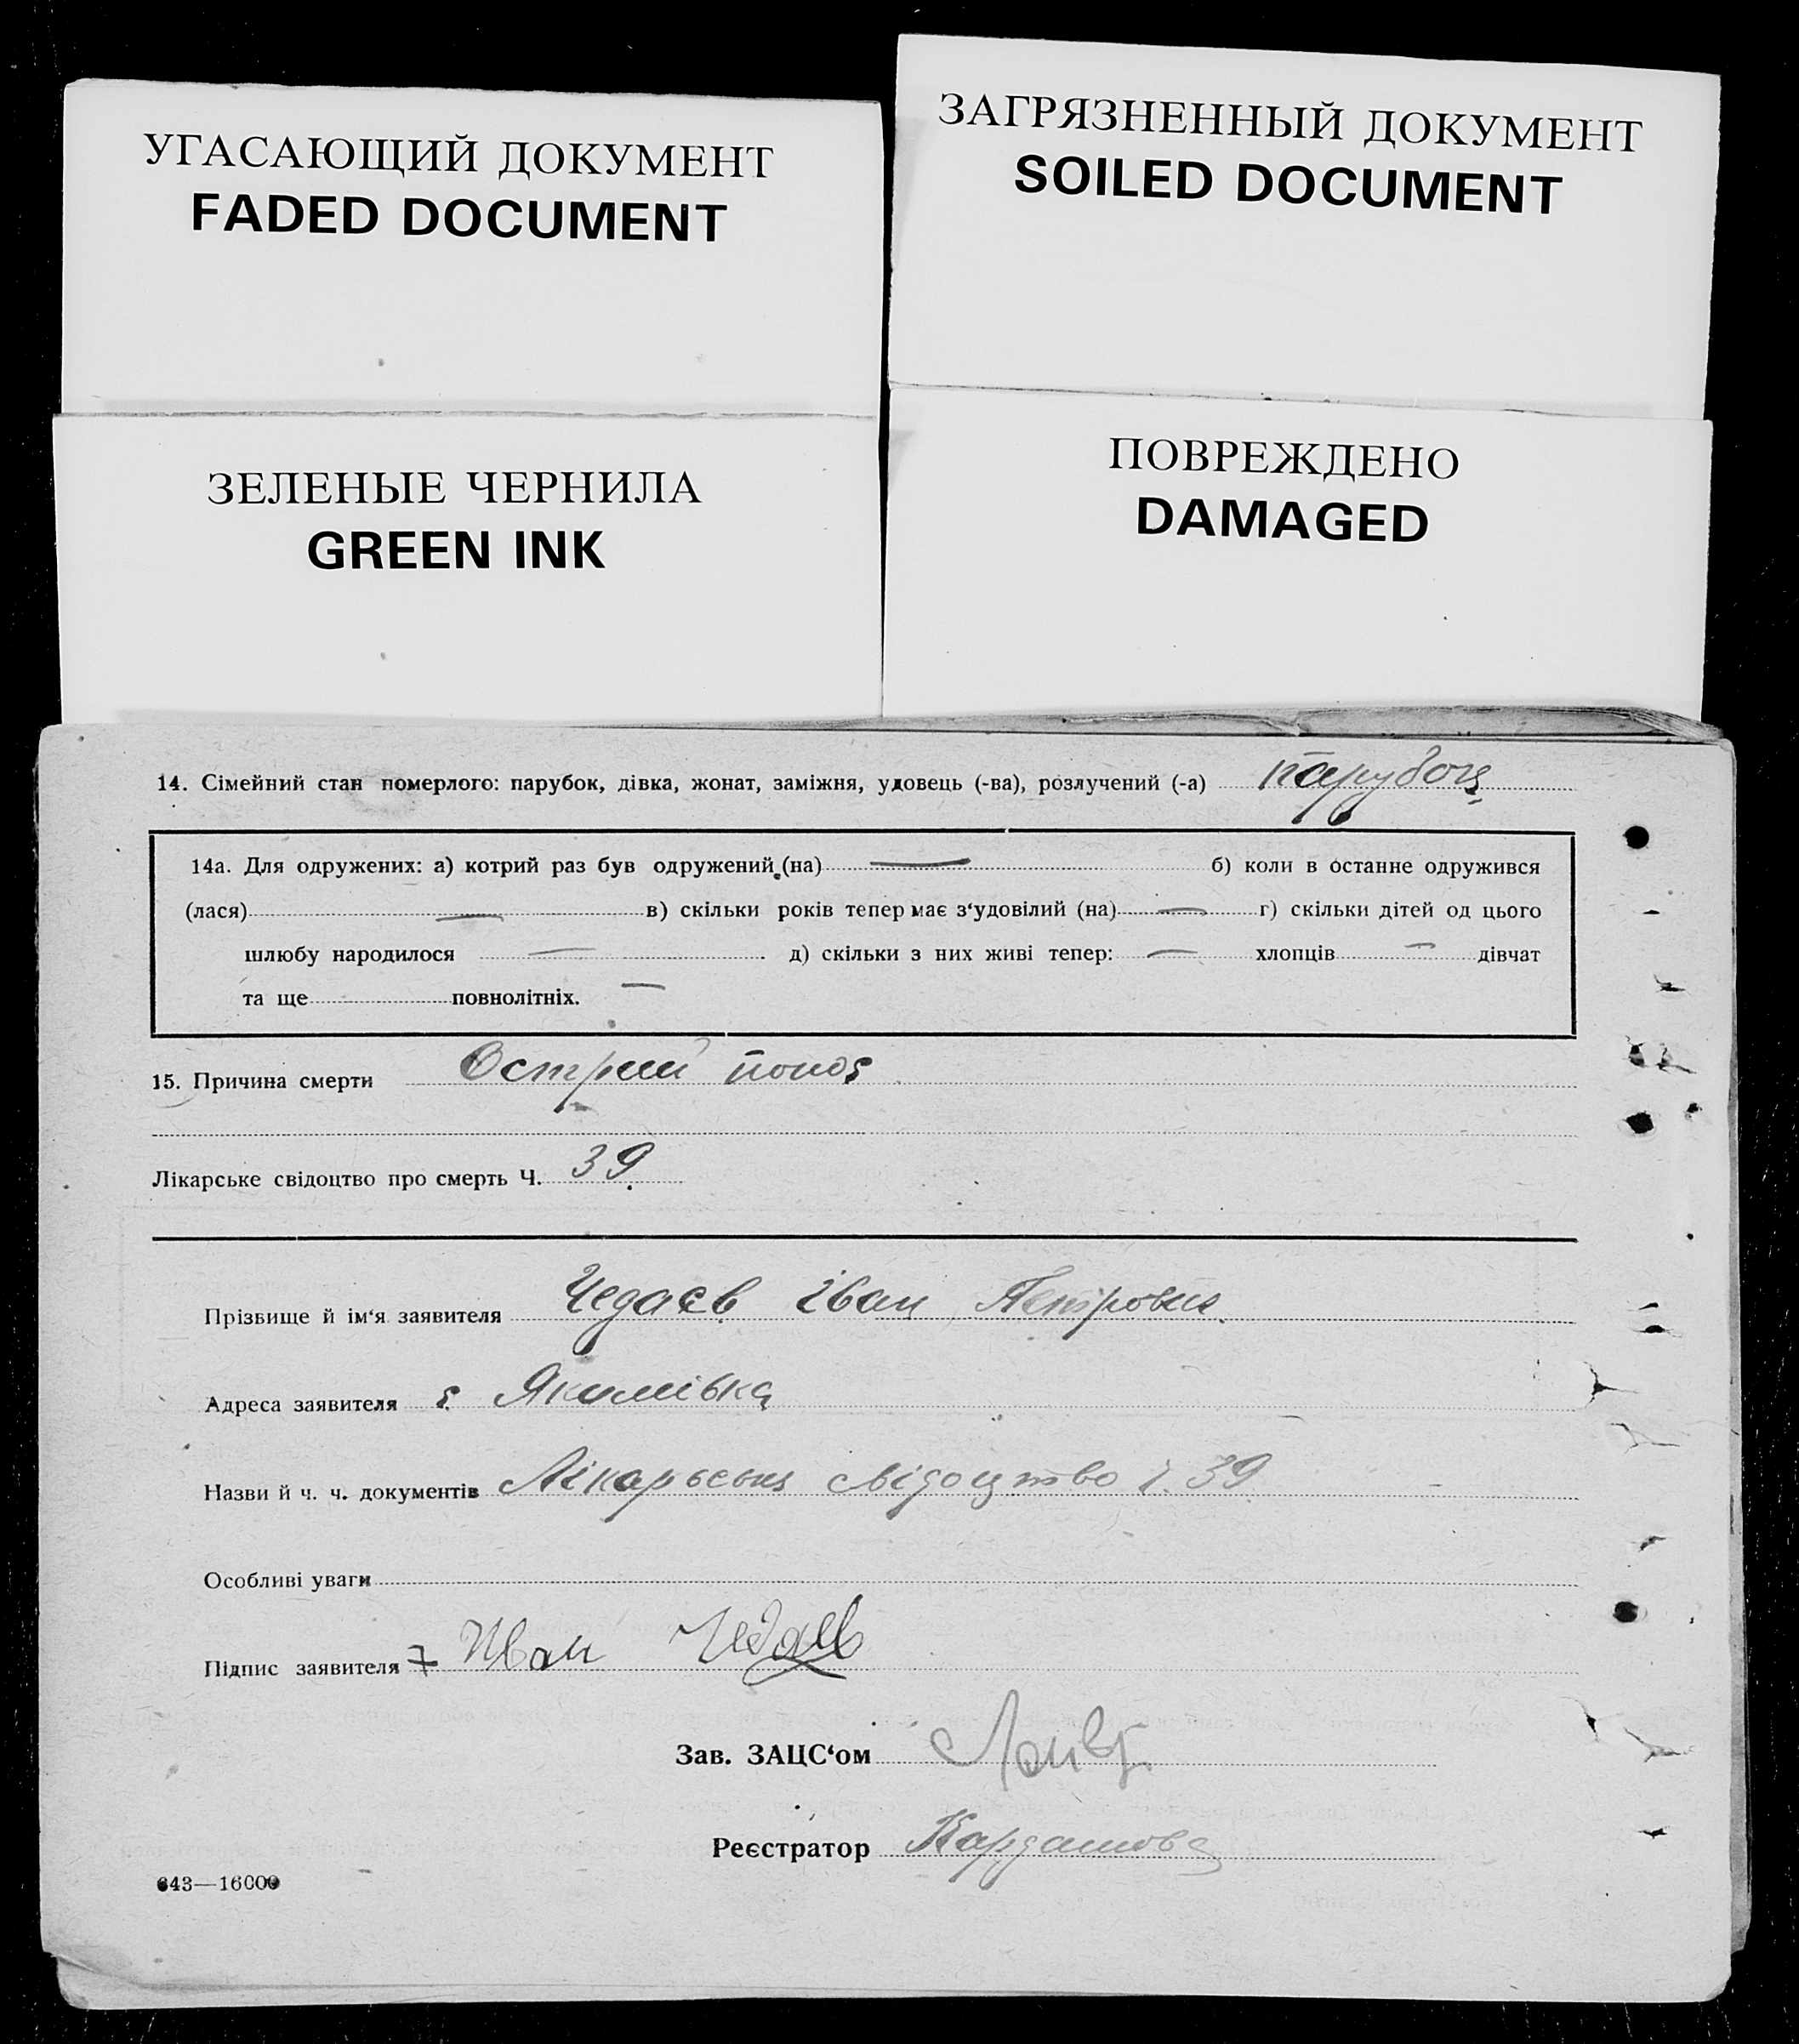 УГАСАЮЩИЙ ДОКУМЕНТ
FADED DOCUMENT
ЗАГРЯЗНЕННЫЙ ДОКУМЕНТ
SOILED DOCUMENT
ЗЕЛЕНЫЕ ЧЕРНИЛА
GREEN INK
ПОВРЕЖДЕНО
DAMAGED
14. Сімейний стан померлого: парубок, дівка, жонат, заміжня, удовець (-ва), розлучений (-а) парубок
14а. Для одружених: а) котрий раз був одружений (на) — б) коли в останне одружився
(лася) — в) скільки років тепер має з‘удовілий (на) — г) скільки дітей од цього
шлюбу народилося — д) скільки з них живі тепер: — хлопців — дівчат
та ще повнолітніх. —
15. Причина смерти Острий понос
Лікарське свідоцтво про смерть Ч. 39
Прізвище й ім‘я заявителя Чедаєв Іван Петрович
Адреса заявителя с. Якимівка
Назви й ч. ч. документів Лікарське свідоцтво ч. 39
Особливі уваги
Підпис заявителя Иван Чедаев
Зав. ЗАЦС‘ом
Реєстратор Кардашова
643—16000